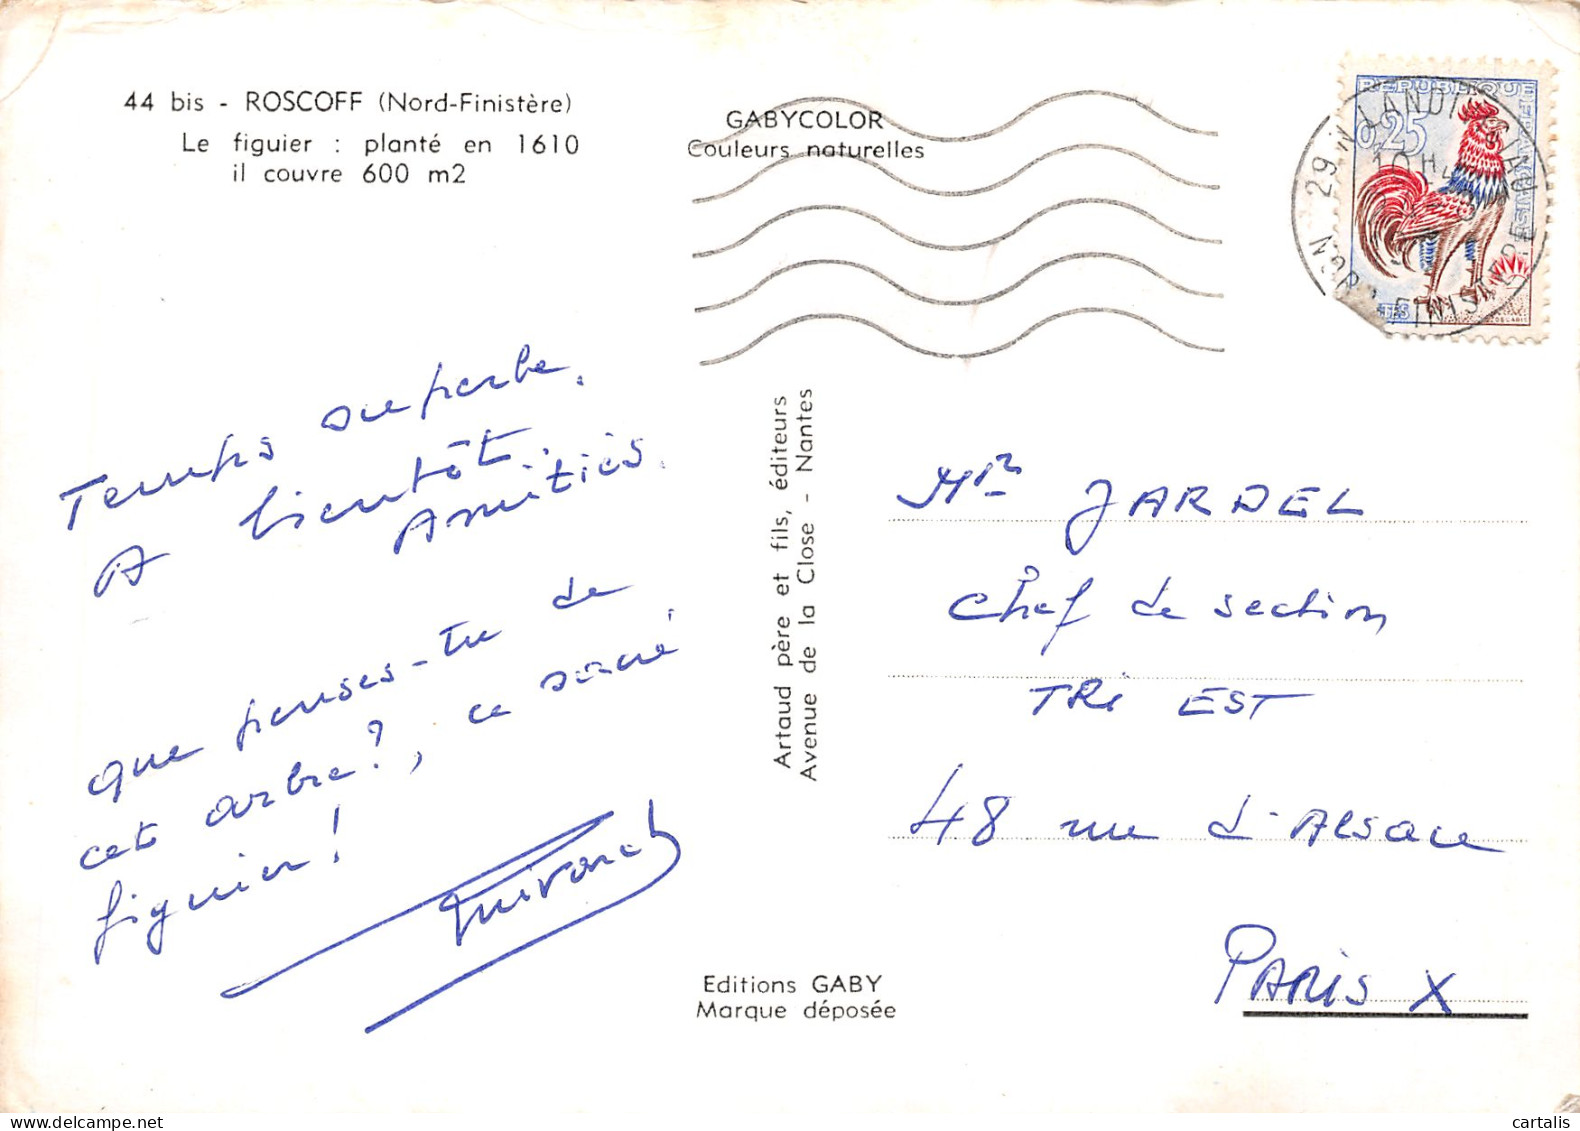 44 bis - ROSCOFF (Nord-Finistère)
Le figuier : planté en 1610
il couvre 600 m2
GABYCOLOR
Couleurs naturelles
REPUBLIQUE FRANÇAISE
0,25
LANDI
29 N
FINISTERE
Temps superbe.
A bientôt.
Amitiés.
que penses-tu de
cet arbre?, ce sacré
figuier!
Artaud père et fils, éditeurs
Avenue de la Close - Nantes
Mr JARDEL
Chef de section
TRi EST
48 rue d'Alsace
PARis X
Editions GABY
Marque déposée
cartalis